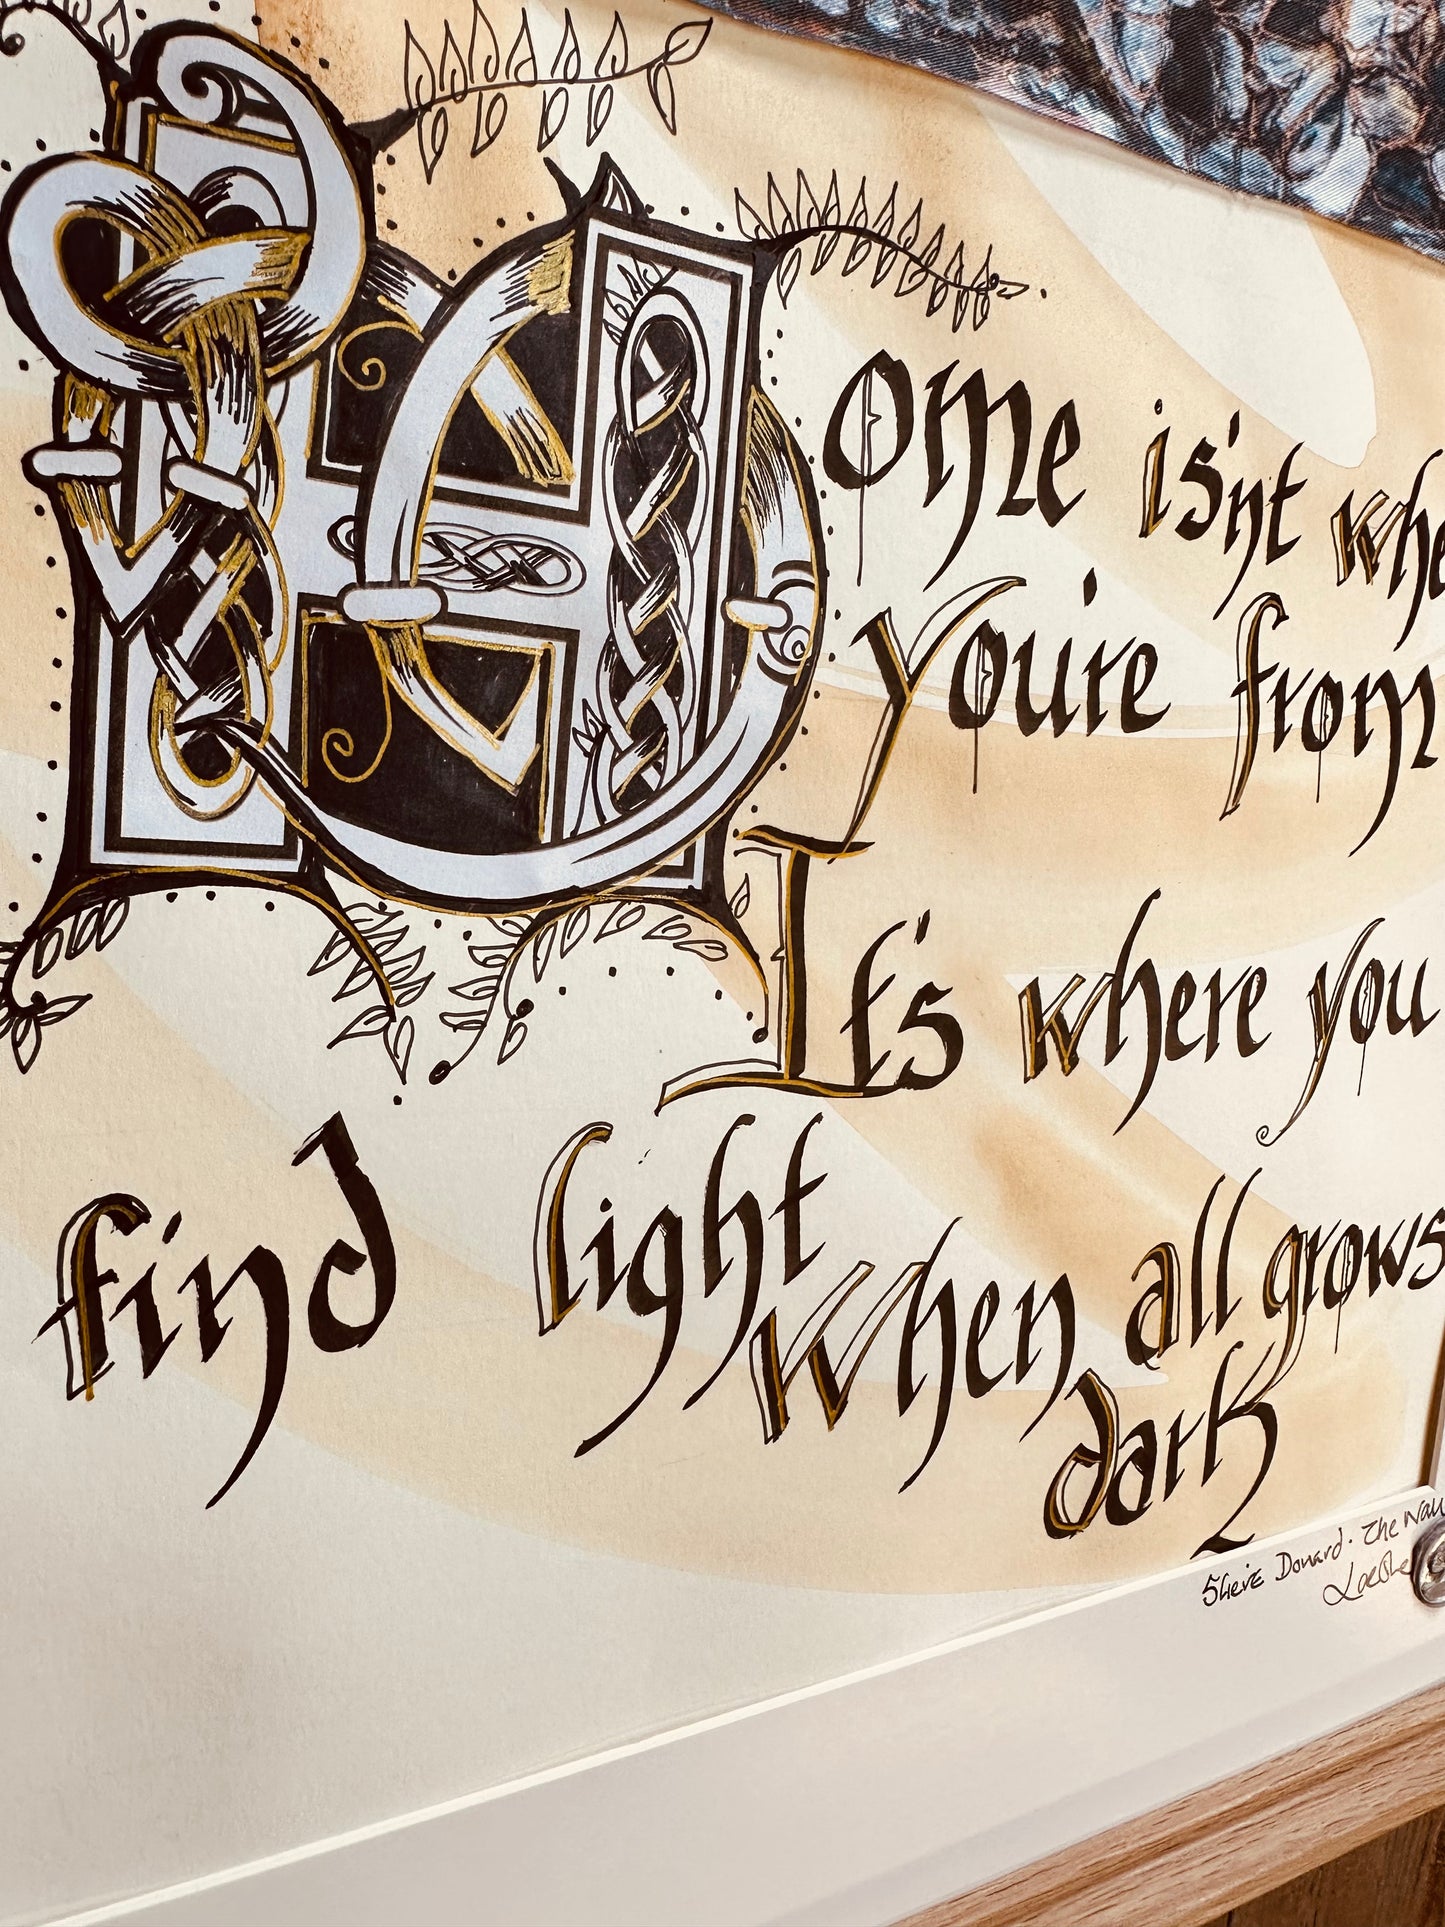 Home isn't whe
you're from
It's where you
find light when all grows
dark
Slieve Donard. The Wall